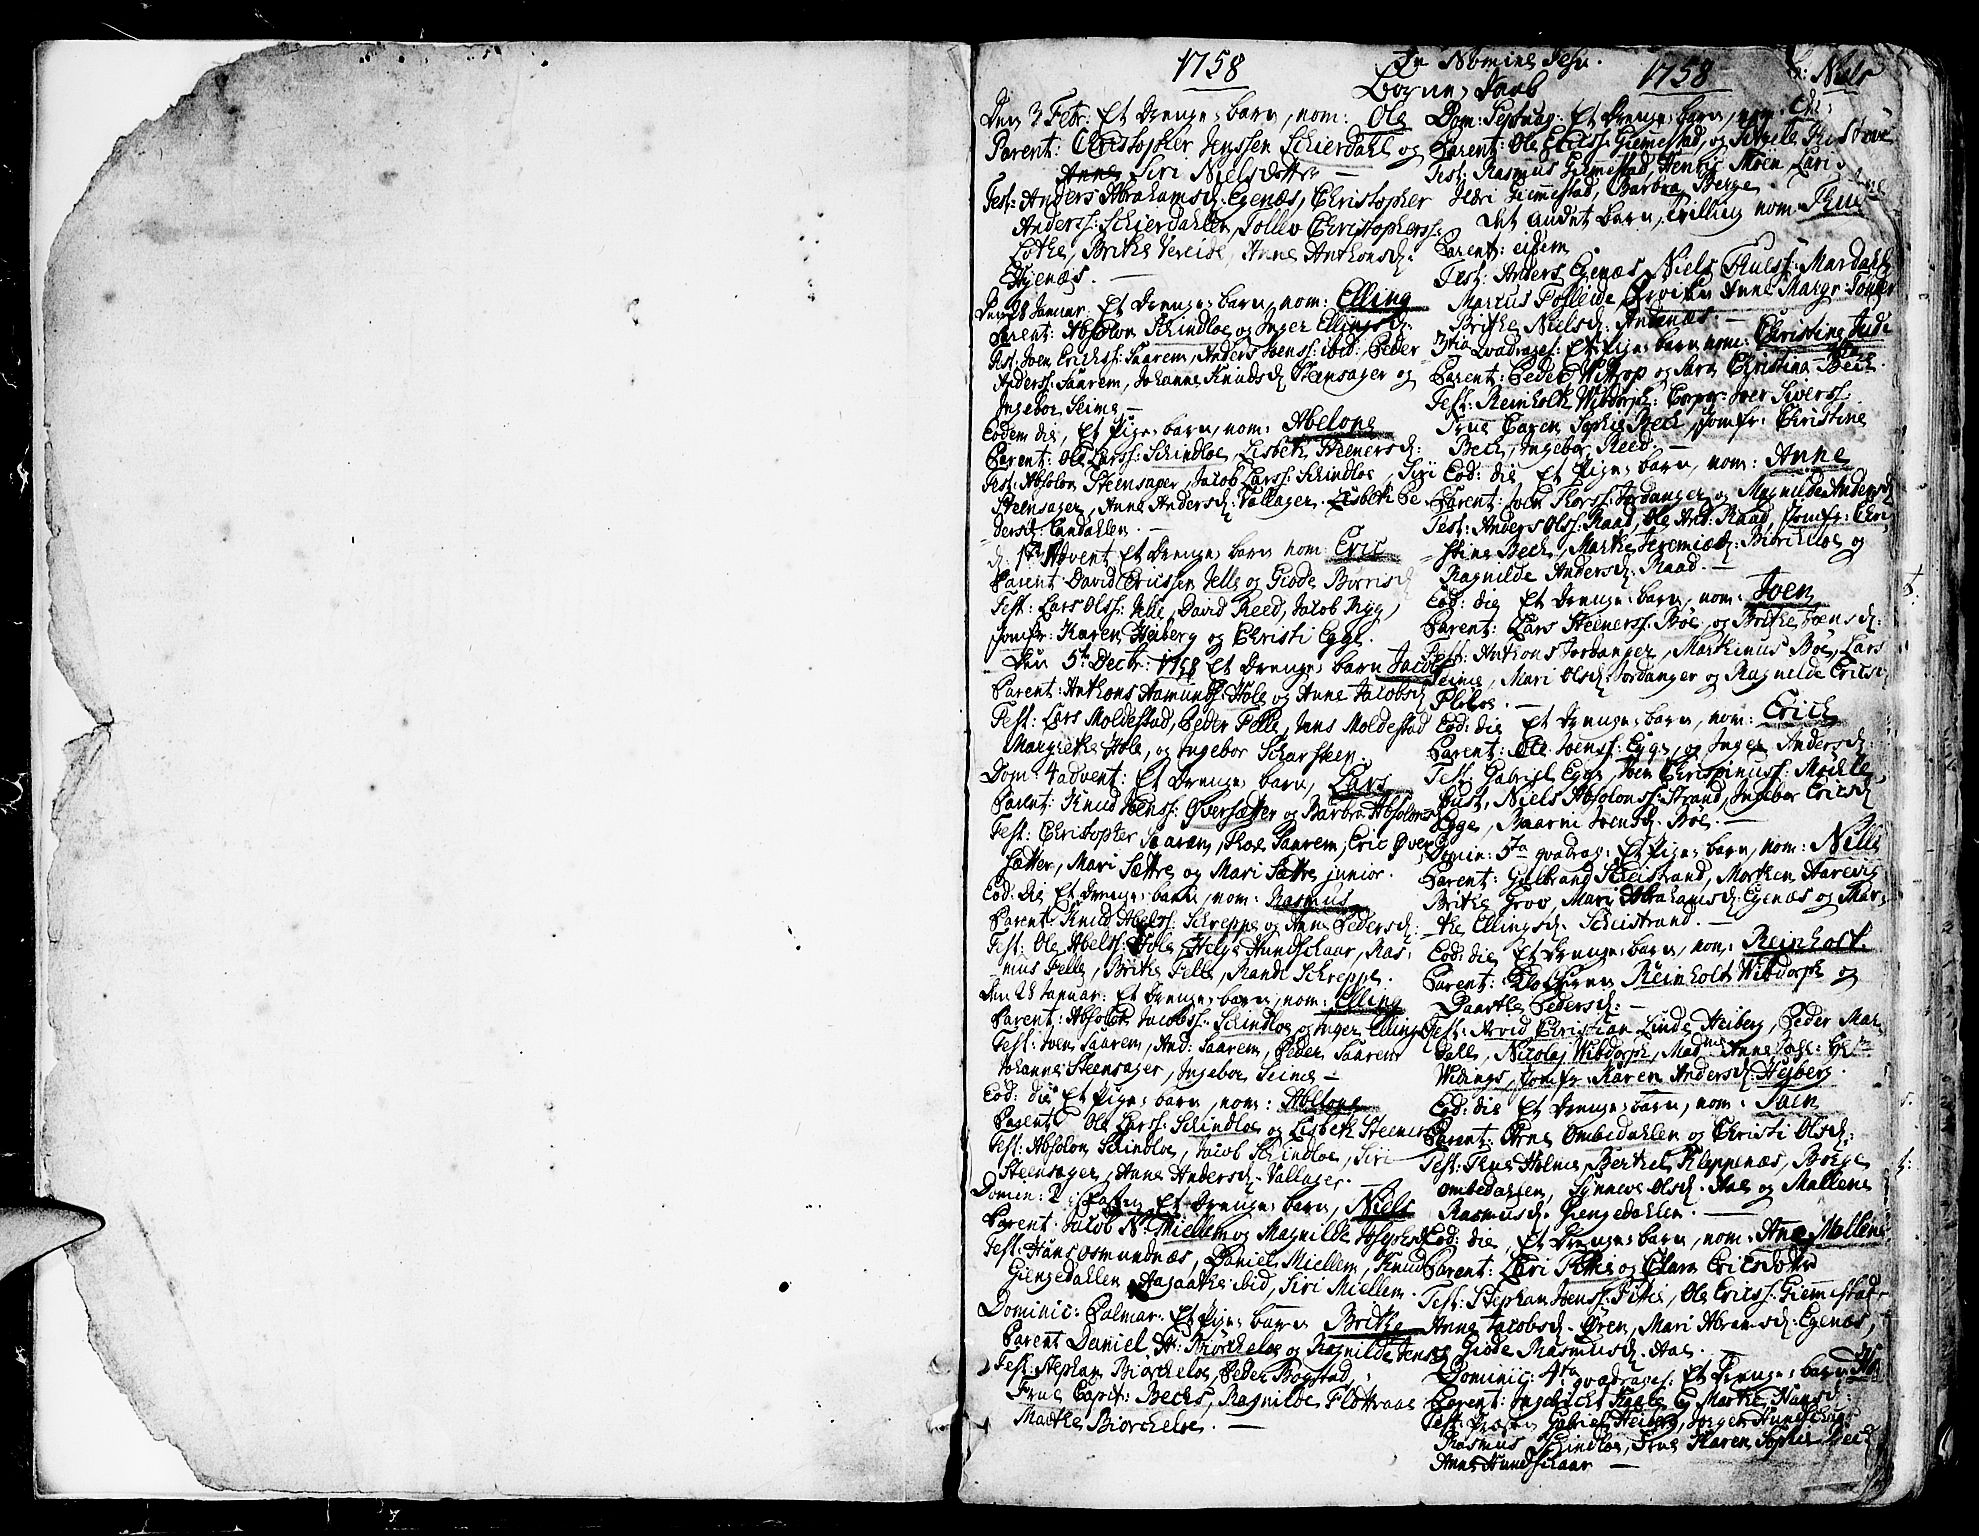 1758
In Nomine Jesu.
Børne, Daab
1758
Den 3 Febr: Et Drenge, barn, nom: Ole
Parent: Christopher Jenssen Schierdahl og
Siri Nielsdotter —
Test: Anders Abrahamsd. Egenæs, Christopher
Anderss: Schierdahlen, Tollev Christophers:
Lothe, Brithe Vereide, Anne Anthonsd:
Hjenæs. —
Den 28 Januar: Et Drenge, barn, nom: Elling
Parent: Absolon Schindloe og Inger Ellingsd:
Test: Joen Erichss: Saarem, Anders Joenss: ibid: Peder
Anderss: Saarem, Johanne Knudsd Steensager og
Ingebor Seime —
Eodem die, Et Pige, barn, nom: Abelone
Parent: Ole Larss: Schindloe, Lisbeth Steenersd:
Test: Absolon Steensager, Jacob Larss: Schindloe, Siri
Steensager, Anne Andersd: Vallager. Lisbeth Pe
dersd: Sandahlen. —
D. 1ste Advent Et Drenge, barn nom: Eric
Parent David Ericssen Jelle og Giøde Børrisd
Test: Lars Olss: Jelle, David Reed, Jacob Rygg,
Jomfr: Karen Heiberg og Christi Egge.
Den 5te Decbr: 1758 Et Drenge, barn Jacob
Parent: Anthons Aamunds: Hole og Anne Jacobsd
Test: Lars Moldestad, Peder Felle, Jens Moldestad
Margrethe Hole, og Ingebor Scharsteen.
Dom: 4 advent: Et Drenge, barn, Lars
Parent: Knud Joenss: Øversætter og Barbra Absolonsd
Test: Christopher Saarem, Thoe Saarem, Eric Øver
sætter, Mari Sættre og Mari Sættre junior.
Eod: die Et Drenge, barn, nom: Rasmus
Parent: Knud Abelss: Schreppe og Anne Pedersd:
Test: Ole Abelss: Hole, Helge Hundschaar, Ras:
mus Felle, Brithe Felle, Randi Schreppe.
Den 28 Januar: Et Drenge, barn, nom: Elling
Parent: Absolon Jacobss: Schindloe og Inger Ellingsd
Test: Joen Saarem, And: Saarem, Peder Saarem
Johanne Steensager, Ingebor Seime —
Eod: die Et Pige, barn, nom: Abelone
Parent: Ole Larss: Schindloe og Lisbeth Steenersd
Test: Absolon Schindloe, Jacob Schindloe, Siri
Steensager, Anne Andersd. Vallager. —
Domin: 2 Et Drenge, barn, Niels
Parent: Jacob N: Miellem og Magnilde Josephsd
Test: Hans Osmundnæs, Daniel Miellem, Knud
Giengedahlen, Aagaathe ibid, Siri Miellem.
Dominic: Palmar: Et Pige, barn Brithe
Parent Daniel A: Biørcheloe og Ragnilde Jensd
Test: Stephan Biørcheloe, Peder Bogstad,
Frue Capit: Bechs, Ragnilde Flottraae
Marthe Biørcheloe. —
Niels
Dom: Septuag: Et Drenge, barn, nom:
Parent: Ole Ericss: Giemmestad, og
Test: Rasmus Giemmestad, Henric Moen, Lars
Giemmestad, Barbra Berge.
Det andet barn, Tvilling nom
Parent: eidem
Test: Anders Egenæs, Niels Thuess: Mardahl
Marcus Tolleide, Anne Margr:
Brithe Nielsd: Andenæs. —
3tia Qvadrages: Et Pige, barn nom: Christine Judi
the
Parent: Peder Wittrop og Sara Christina Bech.
Test: Reinholt Wibdorph: Corpor: Iver Siverss.
Frue Caren Sophie Bech, Jomfr: Christine
Bech, Ingebor Reed. —
Eod: die, Et Pige, barn, nom: Anne
Parent: Joen Thorss: Jordanger og Magnilde Andersd
Test: Anders Olss: Raad, Ole And: Raad, Jomfr: Chri
stine Bech, Marthe Jeremiæd: Biørcheloe og
Ragnilde Andersd: Raad. —
Eod: die Et Drenge, barn, nom: Joen
Parent: Lars Steeners: Bøe, og Brithe Joensd:
Test: Anthons Jordanger, Marthinus Bøe, Lars
Seime, Mari Olsd: Jordanger og Ragnilde Ericsd
Floloe. —
Eod: die Et Drenge, barn, nom: Erich
Parent: Ole Joenss: Egge, og Inger Andersd:
Test: Gabriel Egge, Joen Chrispinuss: Mychle
bust, Niels Absolonss: Strand, Ingebor Ericsd
Egge, Baarni Joensd: Bøe. —
Domin: 5ta qvadrag: Et Pige, barn, nom: Nille
Parent: Gulbrand Scheistrand, Morthen Harevig
Brithe Grov, Mari Abrahamsd: Egenæs og Mar:
the Ellingsd. Scheistrand. —
Eod: die Et Drenge, barn, nom: Reinholt.
Parent: Klocheren Reinholt Wibdorph og
Baartle Pedersd: —
Test: Arvid Christian Linde Heiberg, Peder Mar
dahl, Nicolaj Wibdorph, Mad: Anne
Wibings, Jomfr: Karen Andersd: Hejberg.
Eod: die Et Drenge, barn, nom. Joen
Parent: Arne Ombedahlen og Christi Olsd:
Test: Thue Holme, Berthel Kleppenæs, Børge
Ombedahlen, Synneve Olsd. Aae og Mallene
Rasmusd. Giengedahlen. —
Eod: die, Et Drenge, barn, nom: Ane Mallene
Parent: Lari Fitie og Clara Ericsdotter
Test: Stephan Joenss: Fitie, Ole Ericss: Giemestad
Anne Jacobsd. Øren, Mari Abramsd: Egenæs,
Giøde Rasmusd. Aae. —
Dominic: 4ta qvadrages: Et Drenge, barn
Parent: Ingebricht og Marthe Hansd:
Test: Gabriel Heiberg, Jørgen Hundschaar
Rasmus Schindloe, Frue Karen Sophie Bech
Anne Hundschaar —